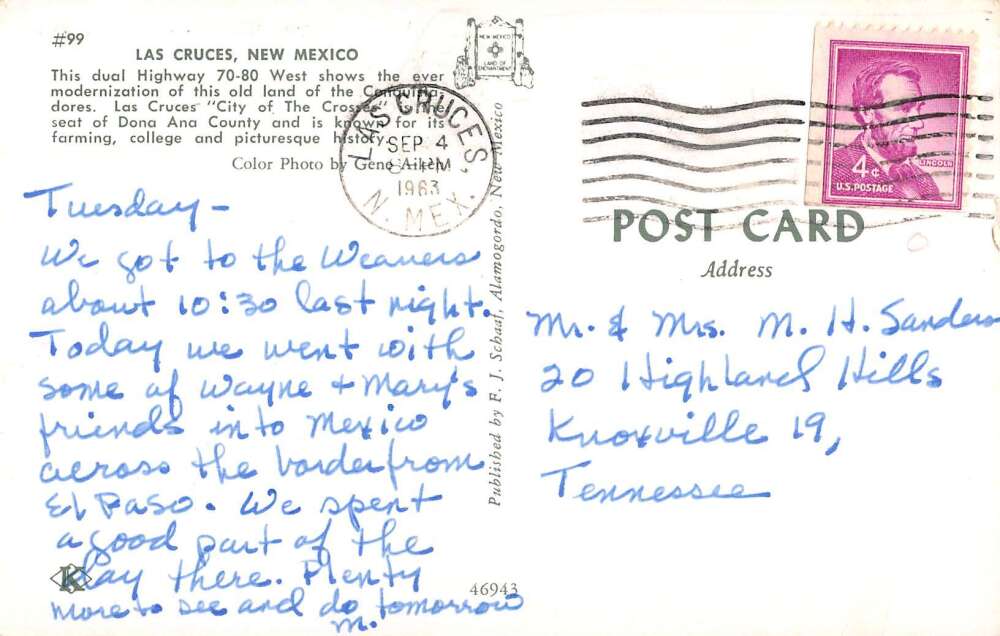 #99
LAS CRUCES, NEW MEXICO
This dual Highway 70-80 West shows the ever
modernization of this old land of the Conquista-
dores. Las Cruces "City of The Crosses" is the
seat of Dona Ana County and is known for its
farming, college and picturesque history.
Color Photo by Gene Aiken
NEW MEXICO
LAND OF
ENCHANTMENT
LAS CRUCES,
SEP 4
PM
1963
N. MEX.
LINCOLN
4¢
U.S. POSTAGE
POST CARD
Address
Tuesday -
We got to the Weavers
about 10:30 last night.
Today we went with
some of Wayne + Mary's
friends into Mexico
across the border from
El Paso. We spent
a good part of the
day there. Plenty
more to see and do tomorrow
M.
K
Published by F. J. Schaaf, Alamogordo, New Mexico
46943
Mr. & Mrs. M. H. Sanders
20 Highland Hills
Knoxville 19,
Tennessee